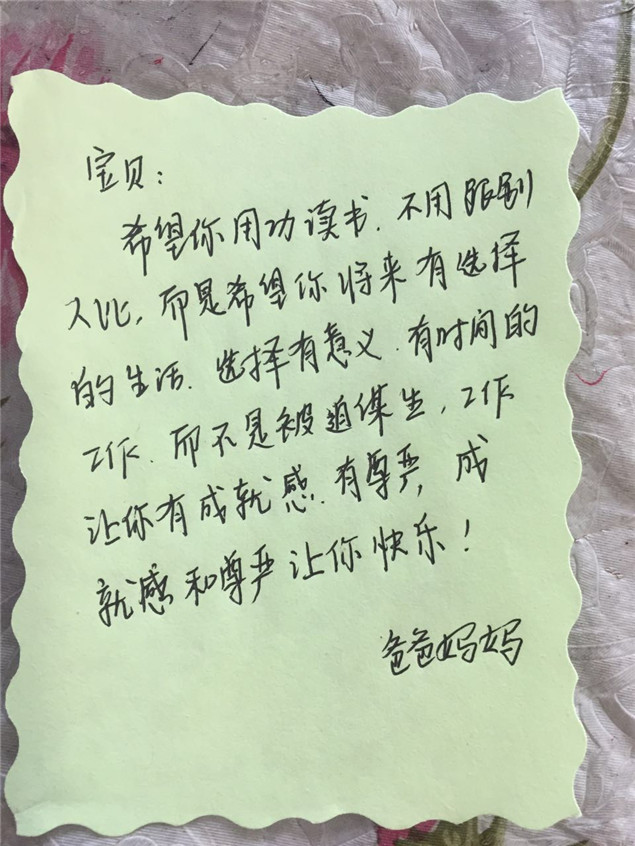 宝贝：
希望你用功读书、不用跟别
人比，而是希望你将来有选择
的生活、选择有意义、有时间的
工作、而不是被迫谋生，工作
让你有成就感、有尊严，成
就感和尊严让你快乐！
爸爸妈妈